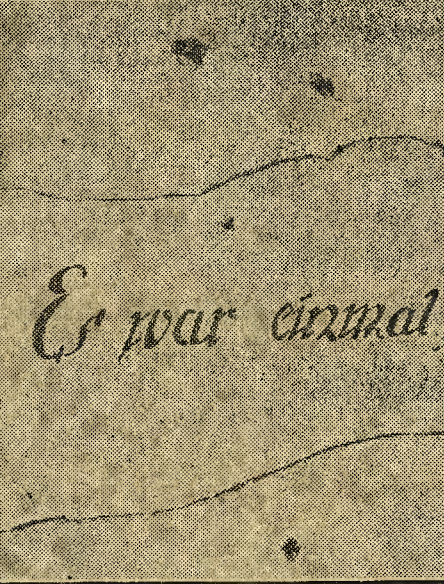 Es war einmal